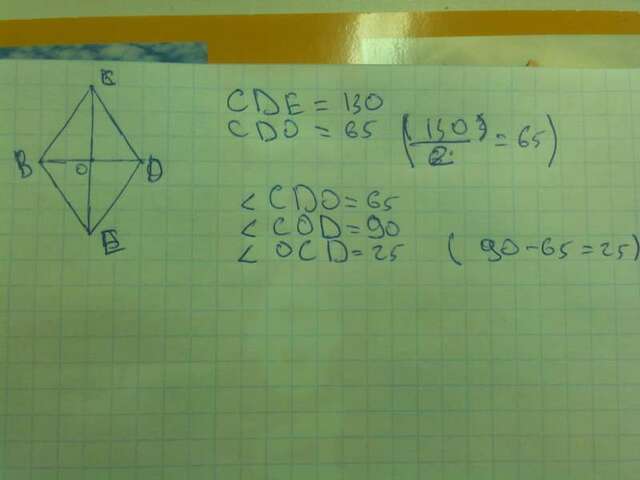 C
B O D
E
CDE = 130
CDO = 65 (130/2 = 65)
< CDO = 65
< COD = 90
< OCD = 25 ( 90 - 65 = 25)